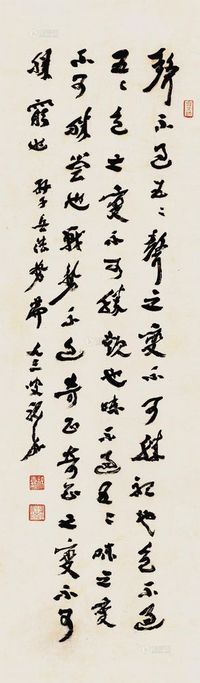 聲不過五〻聲之變不可勝聽也色不過
五〻色之變不可勝觀也味不過五〻味之變
不可勝嘗也戰勢不過奇正奇正之變不可
勝窮也 孫子兵法勢篇 九三叟